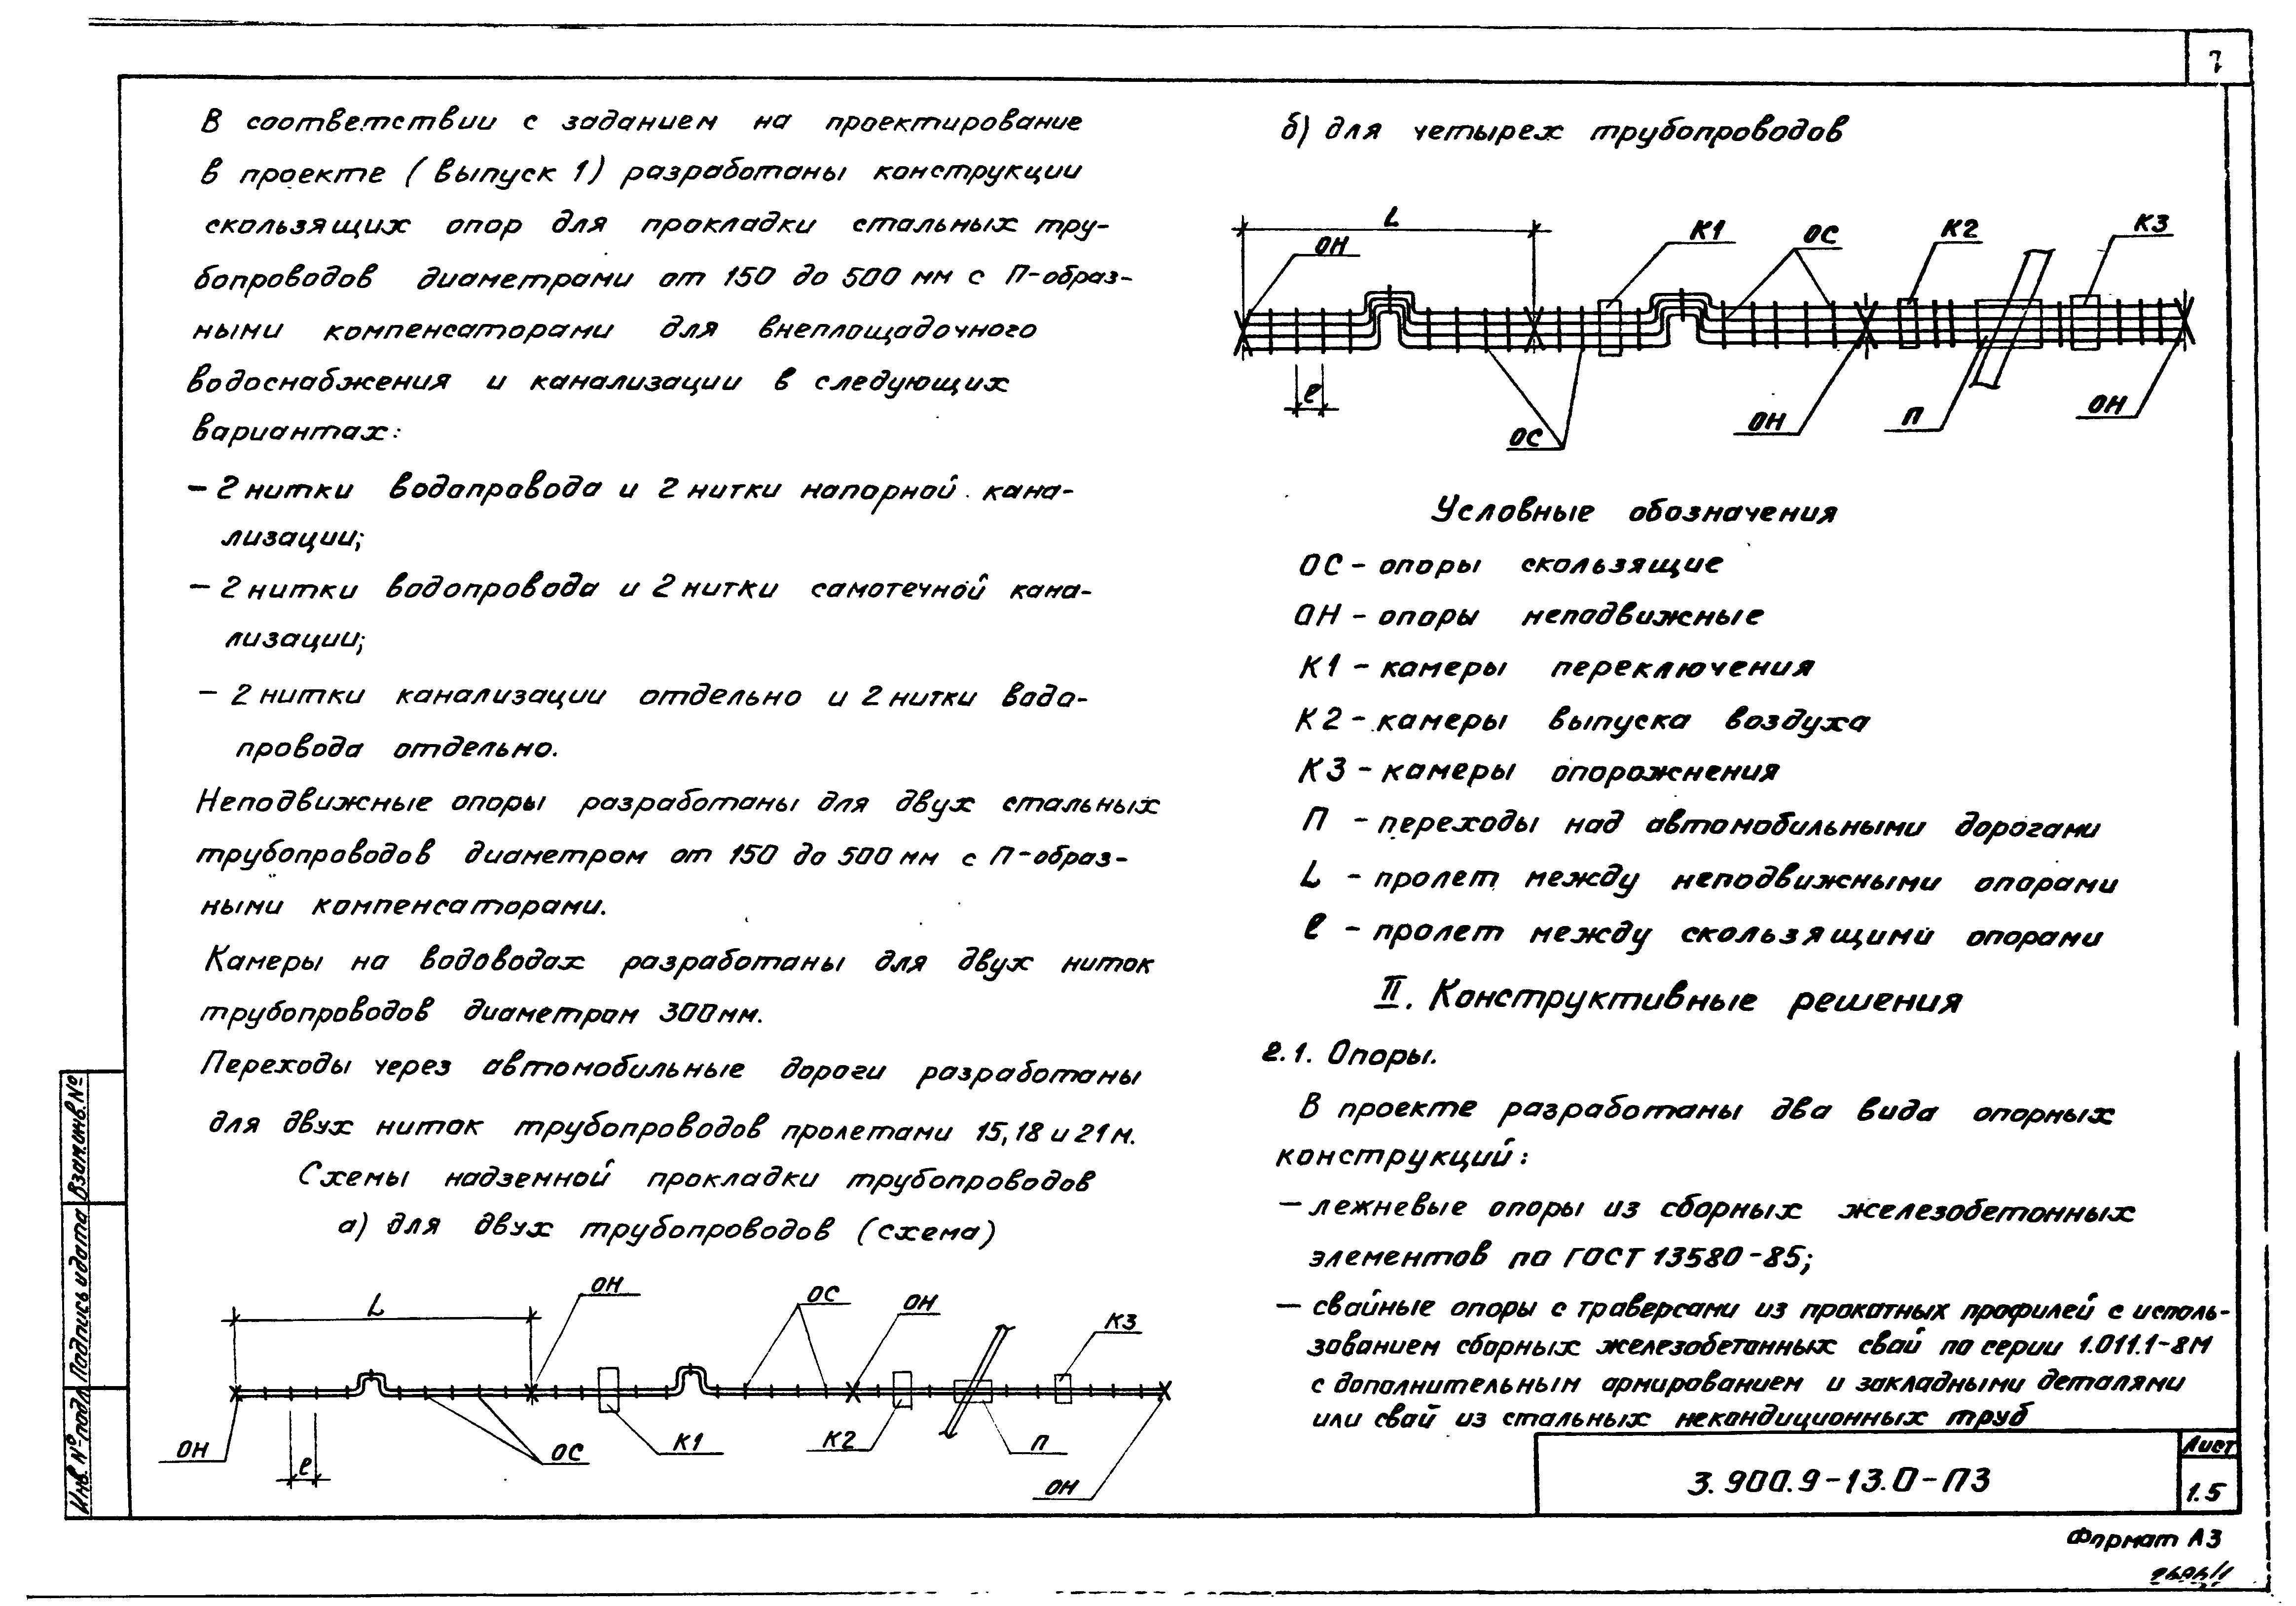 7
В соответствии с заданием на проектирование
в проекте (выпуск 1) разработаны конструкции
скользящих опор для прокладки стальных тру-
бопроводов диаметрами от 150 до 500 мм с П-образ-
ными компенсаторами для внеплощадочного
водоснабжения и канализации в следующих
вариантах:
- 2 нитки водопровода и 2 нитки напорной кана-
лизации;
- 2 нитки водопровода и 2 нитки самотечной кана-
лизации;
- 2 нитки канализации отдельно и 2 нитки водо-
провода отдельно.
Неподвижные опоры разработаны для двух стальных
трубопроводов диаметром от 150 до 500 мм с П-образ-
ными компенсаторами.
Камеры на водоводах разработаны для двух ниток
трубопроводов диаметром 300 мм.
Переходы через автомобильные дороги разработаны
для двух ниток трубопроводов пролетами 15, 18 и 21 м.
Схемы надземной прокладки трубопроводов
а) для двух трубопроводов (схема)
L
ОН
ОС
ОН
К3
ОН
l
ОС
К1
К2
П
ОН
б) для четырех трубопроводов
L
ОН
К1
ОС
К2
К3
l
ОС
ОН
П
ОН
Условные обозначения
ОС - опоры скользящие
ОН - опоры неподвижные
К1 - камеры переключения
К2 - камеры выпуска воздуха
К3 - камеры опорожнения
П - переходы над автомобильными дорогами
L - пролет между неподвижными опорами
l - пролет между скользящими опорами
II. Конструктивные решения
2.1. Опоры.
В проекте разработаны два вида опорных
конструкций:
- лежневые опоры из сборных железобетонных
элементов по ГОСТ 13580-85;
- свайные опоры с траверсами из прокатных профилей с исполь-
зованием сборных железобетонных свай по серии 1.011.1-8М
с дополнительным армированием и закладными деталями
или свай из стальных некондиционных труб
3.900.9-13.0-ПЗ
Лист
1.5
Формат А3
Инв. № подл.
Подпись и дата
Взам. инв. №